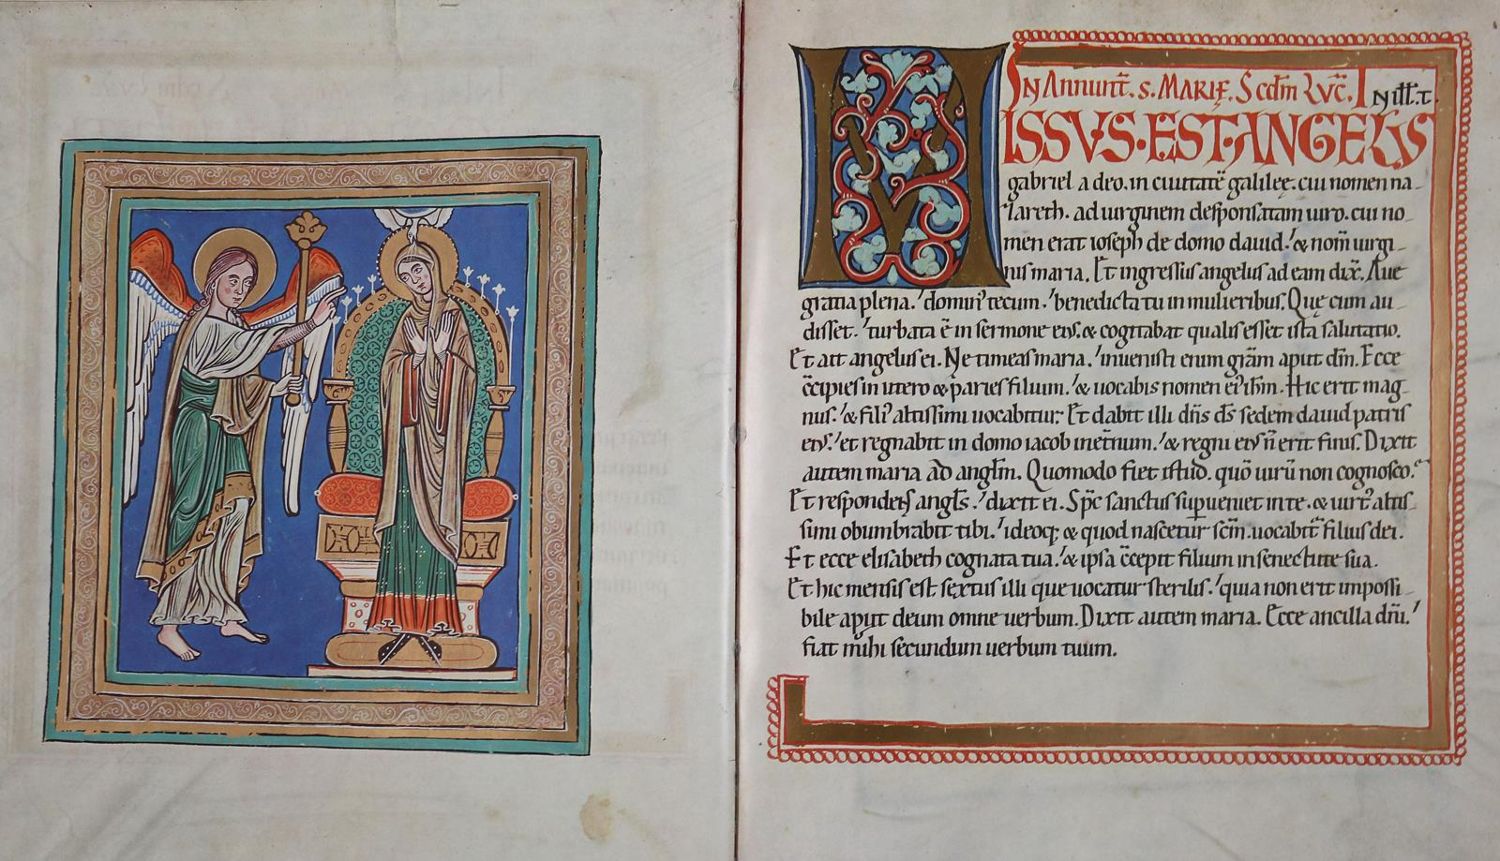 M
IN Annunt̄. S. MARIĘ. Scdm̄ Luc̄. IN ill̄. t̄.
ISSVS·EST·ANGELVS
gabriel a deo. in ciuitatē galileę. cui nomen na-
zareth. ad uirginem desponsatam uiro. cui no-
men erat ioseph de domo dauid. & nom̄ uirgi-
nis maria. Et ingressus angelus ad eam dix̄. Aue
gratia plena. dominꝰ tecum. benedicta tu in mulieribus. Quę cum au-
disset. turbata ē in sermone eius. & cogitabat qualis esset ista salutatio.
Et ait angelus ei. Ne timeas maria. inuenisti enim grām aput dm̄. Ecce
c̄cipies in utero & paries filium. & uocabis nomen eiꝰ ihm̄. Hic erit mag-
nus. & filiꝰ altissimi uocabitur. Et dabit illi dn̄s ds̄ sedem dauid patris
eiꝰ. et regnabit in domo iacob inet̄num. & regni eiꝰ n̄ erit finis. Dixit
autem maria ad anglm̄. Quomodo fiet istud. quō uirū non cognosco.
Et respondens angls̄. dixit ei. Spc̄ sanctus supueniet in te. & uirtꝰ altis-
simi obumbrabit tibi. ideoq; & quod nascetur scm̄. uocabit̄ filius dei.
Et ecce elisabeth cognata tua. & ipsa c̄cepit filium in senectute sua.
Et hic mensis est sextus illi que uocatur sterilis. quia non erit impossi-
bile aput deum omne uerbum. Dixit autem maria. Ecce ancilla dn̄i.
fiat mihi secundum uerbum tuum.